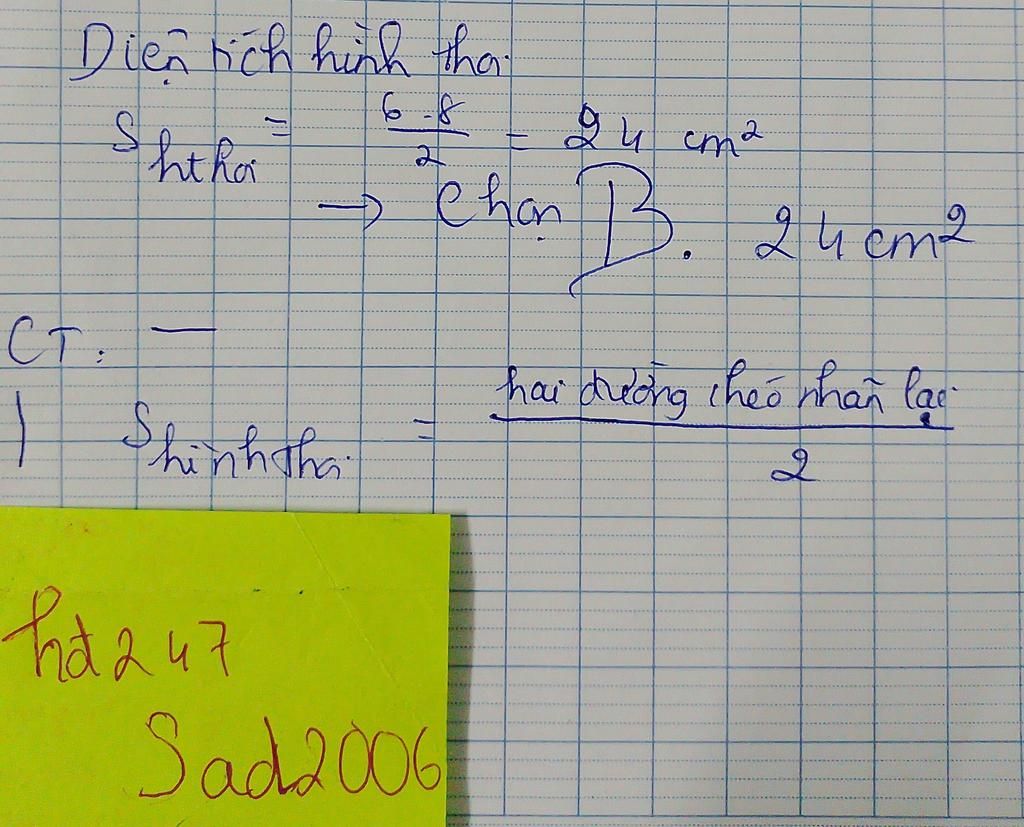 Diện tích hình thoi
S hthoi = 6.8 / 2 = 24 cm²
→ Chọn B. 24 cm²
CT:
S hình thoi = hai đường chéo nhân lại / 2
hđ247
Sad2006